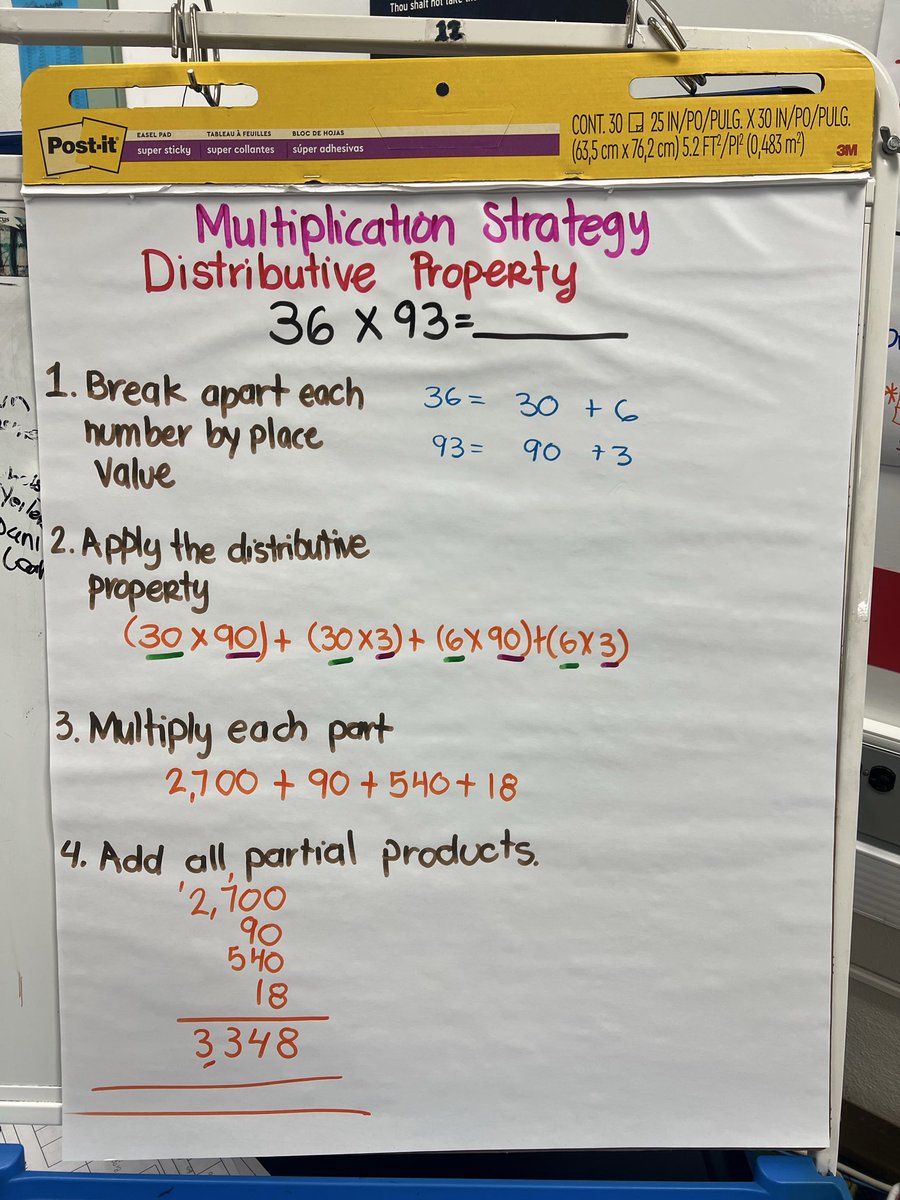 Thou shalt not take the
12
Post-it
EASEL PAD
super sticky
TABLEAU À FEUILLES
super collantes
BLOC DE HOJAS
súper adhesivas
CONT. 30 25 IN/PO/PULG. X 30 IN/PO/PULG.
(63,5 cm x 76,2 cm) 5.2 FT²/PI² (0,483 m²)
3M
Multiplication Strategy
Distributive Property
36 X 93=______
1. Break apart each
number by place
value
36 = 30 + 6
93 = 90 + 3
2. Apply the distributive
property
(30 X 90) + (30 X 3) + (6 X 90)+(6 X 3)
3. Multiply each part
2,700 + 90 + 540 + 18
4. Add all partial products.
1 1
2,700
90
540
18
3,348